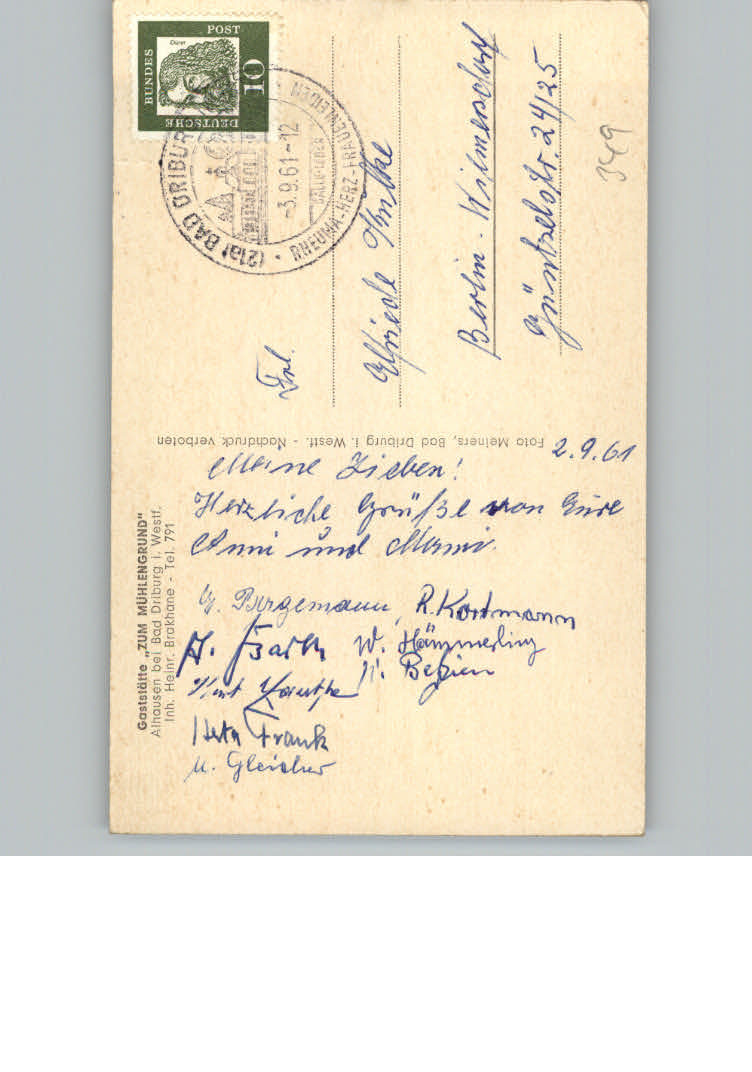 Gaststätte „ZUM MÜHLENGRUND"
Alhausen bei Bad Driburg i. Westf.
Inh. Heinr. Brakhane - Tel. 791
Foto Meiners, Bad Driburg i. Westf. - Nachdruck verboten
2.9.61
Meine Lieben!
Herzliche Grüße von Eure
Anni und Mami.
Bergemann, R. Kortmann
W. Hämmerling
Herta Frank
DEUTSCHE
BUNDES
POST
Dürer
10
(21a) BAD DRIBURG
-3.9.61-12
RHEUMA-HERZ-FRAUENLEIDEN
Frl.
Elfriede
Berlin-Wilmersdorf
Güntzelstr. 24/25
349